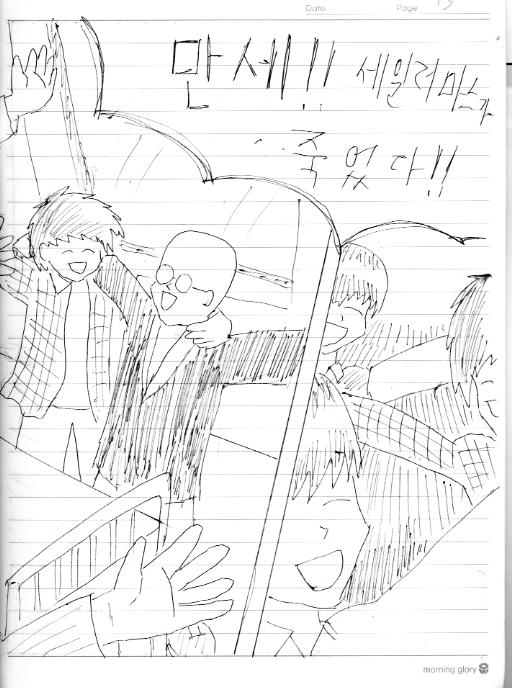 Date Page
만세!! 세일러마스가
...죽었다!!
morning glory